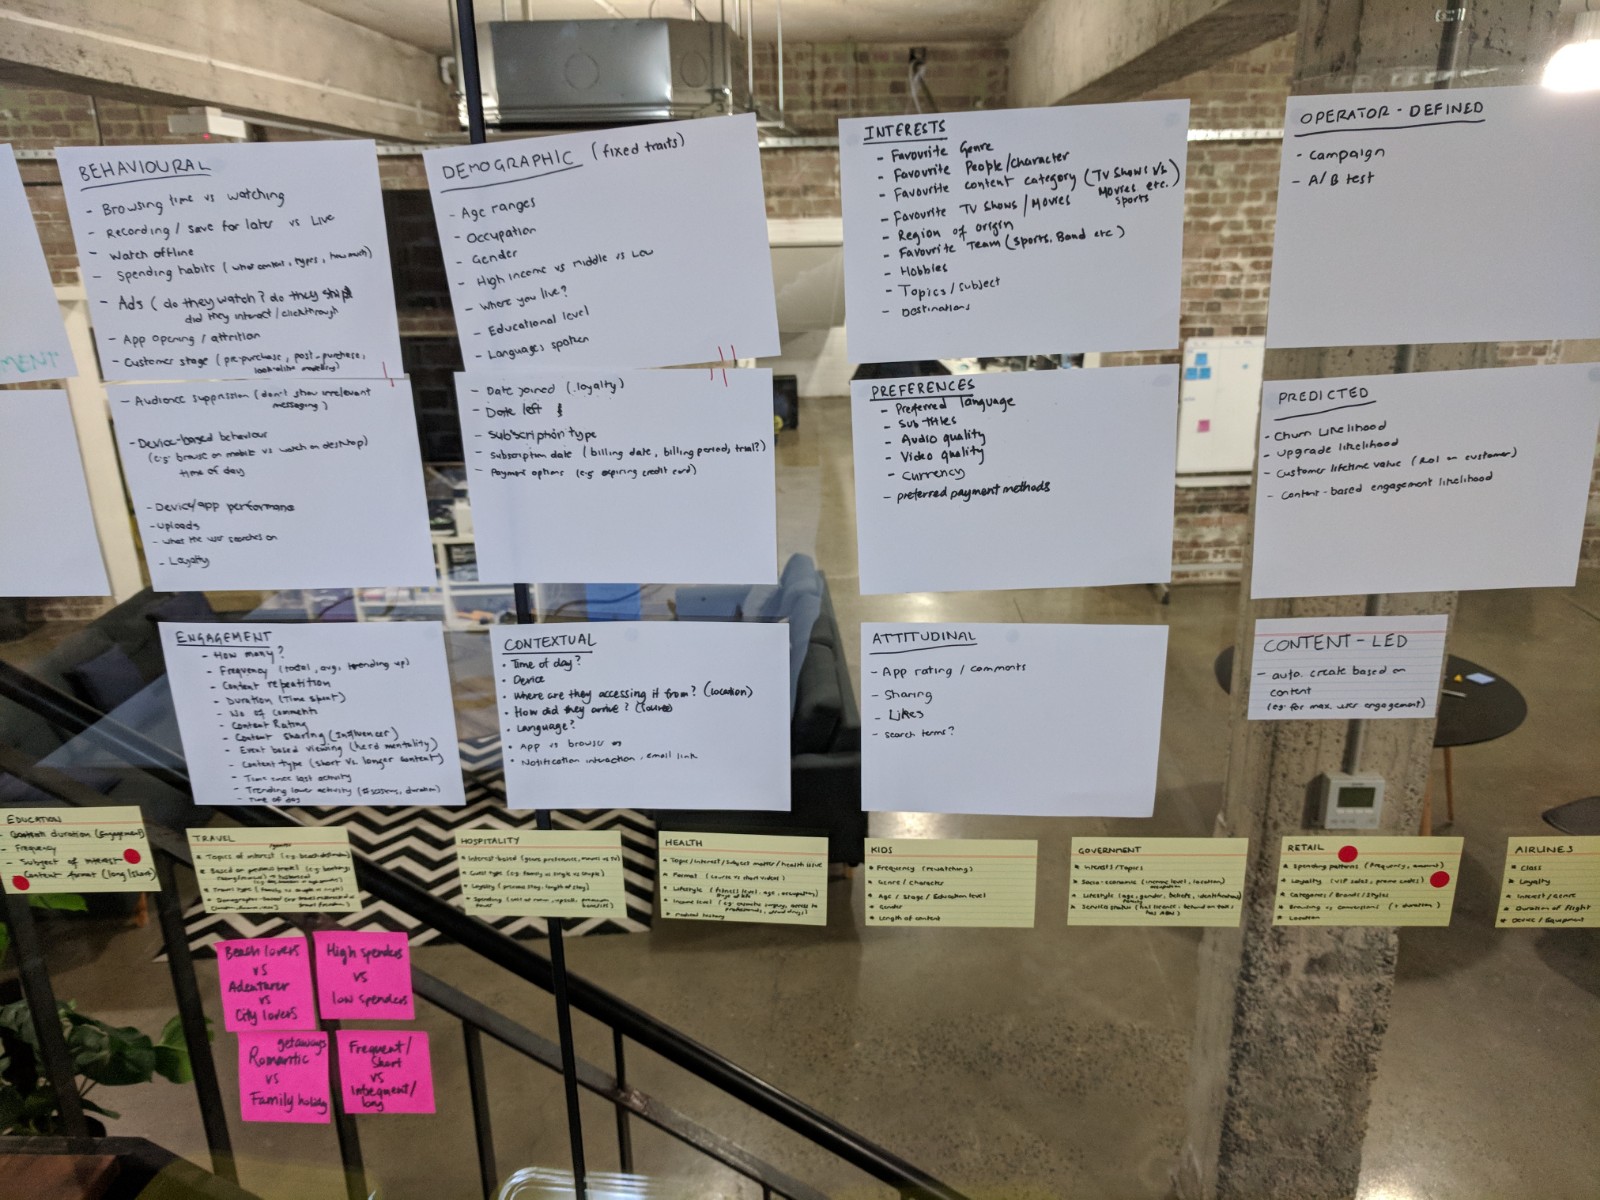 MENT
BEHAVIOURAL
- Browsing time vs watching
- Recording / save for later vs Live
- Watch offline
- Spending habits (what content, types, how much)
- Ads (do they watch? do they skip?
did they interact / clickthrough
- App opening / attrition
- Customer stage (pre-purchase, post-purchase,
lookalike modelling)
- Audience suppression (don't show irrelevant
messaging)
- Device-based behaviour
(e.g. browse on mobile vs watch on desktop)
time of day
- Device/app performance
- uploads
- what the user searches on
- Loyalty
DEMOGRAPHIC (fixed traits)
- Age ranges
- Occupation
- Gender
- High income vs middle vs Low
- Where you live?
- Educational level
- Languages spoken
- Date joined (loyalty)
- Date left
- Subscription type
- Subscription date (billing date, billing period, trial?)
- Payment options (e.g expiring credit card)
INTERESTS
- Favourite Genre
- Favourite People/character
- Favourite content category (TV Shows vs
Movies etc.)
- Favourite TV Shows / Movies sports
- Region of origin
- Favourite Team (Sports, Band etc)
- Hobbies
- Topics / Subject
- Destinations
PREFERENCES
- Preferred language
- Sub titles
- Audio quality
- Video quality
- Currency
- preferred payment methods
OPERATOR - DEFINED
- Campaign
- A/B test
PREDICTED
- Churn Likelihood
- upgrade likelihood
- Customer lifetime value (ROI on customer)
- Content-based engagement likelihood
ENGAGEMENT
- How many?
- Frequency (total, avg, trending up)
- Content repetition
- Duration (Time spent)
- No of comments
- Content Rating
- Content sharing (Influencer)
- Event based viewing (herd mentality)
- Content type (short vs. longer content)
- Time since last activity
- Trending lower activity (# sessions, duration)
- Time of day
CONTEXTUAL
• Time of day?
• Device
• Where are they accessing it from? (location)
• How did they arrive?
• Language?
• App vs browser
• Notification interaction, email link
ATTITUDINAL
- App rating / comments
- Sharing
- Likes
- search terms?
CONTENT - LED
- auto. create based on
content
(eg for max. user engagement)
EDUCATION
- Content duration (Engagement)
- Frequency
- Subject of interest
- Content format (long/short)
TRAVEL
• Topics of interest
• Travel type
HOSPITALITY
• Interest-based (genre preference, movies vs tv)
• Guest type (e.g. family vs single vs couple)
• Loyalty (previous stay, length of stay)
• Spending
HEALTH
• Topic/Interest/Subject matter/health issue
• Format (course vs short videos)
• Lifestyle (fitness level, age, occupation)
• Income level
• Medical history
KIDS
• Frequency (rewatching)
• Genre / character
• Age / Stage / Education level
• Gender
• Length of content
GOVERNMENT
• Interests/Topics
• Socio-economic (income level, location)
• Lifestyle
• Service status
RETAIL
• Spending patterns (frequency, amount)
• Loyalty (VIP sales, promo codes)
• Categories / Brands / Styles
• Browsing vs Conversions (+ duration)
• Location
AIRLINES
• Class
• Loyalty
• Interest/Genre
• Duration of flight
• Device / Equipment
Beach lovers
vs
Adventurer
vs
City lovers
High spenders
vs
low spenders
getaways
Romantic
vs
Family holiday
Frequent/
Short
vs
Infrequent/
long